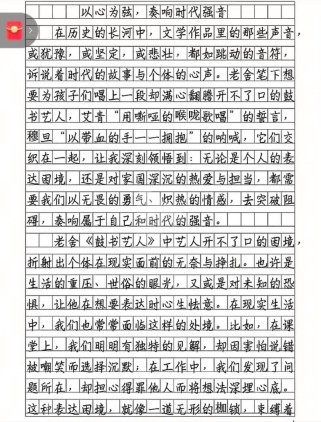 以心为弦，奏响时代强音
在历史的长河中，文学作品里的那些声音，
或犹豫，或坚定，或悲壮，都如跳动的音符，
诉说着时代的故事与个体的心声。老舍笔下想
要为孩子们唱上一段却满心翻腾开不了口的鼓
书艺人，艾青“用嘶哑的喉咙歌唱”的誓言，
穆旦“以带血的手一一拥抱”的呐喊，它们交
织在一起，让我深刻领悟到：无论是个人的表
达困境，还是对家国深沉的热爱与担当，都需
要我们以无畏的勇气、炽热的情感，去突破阻
碍，奏响属于自己和时代的强音。
老舍《鼓书艺人》中艺人开不了口的困境，
折射出个体在现实面前的无奈与挣扎。也许是
生活的重压、世俗的眼光，又或是对未知的恐
惧，让他在想要表达时心生怯意。在现实生活
中，我们也常常面临这样的处境。比如，在课
堂上，我们明明有独特的见解，却因害怕说错
被嘲笑而选择沉默；在工作中，我们发现了问
题所在，却担心得罪他人而将想法深埋心底。
这种表达困境，就像一道无形的枷锁，束缚着